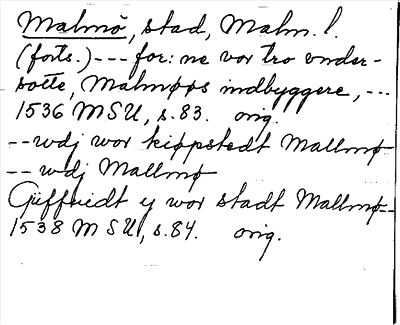 Malmö, stad, Malm. l.
(forts.) --- for: ne vor tro vnder-
sotte, Malmøøs indbyggere, ---
1536 MSU, s. 83. orig.
-- wdj wor kiøpstedt Mallmø
-- wdj Mallmø
Giiffuidt y wor stadt Mallmø--
1538 MSU, s. 84. orig.